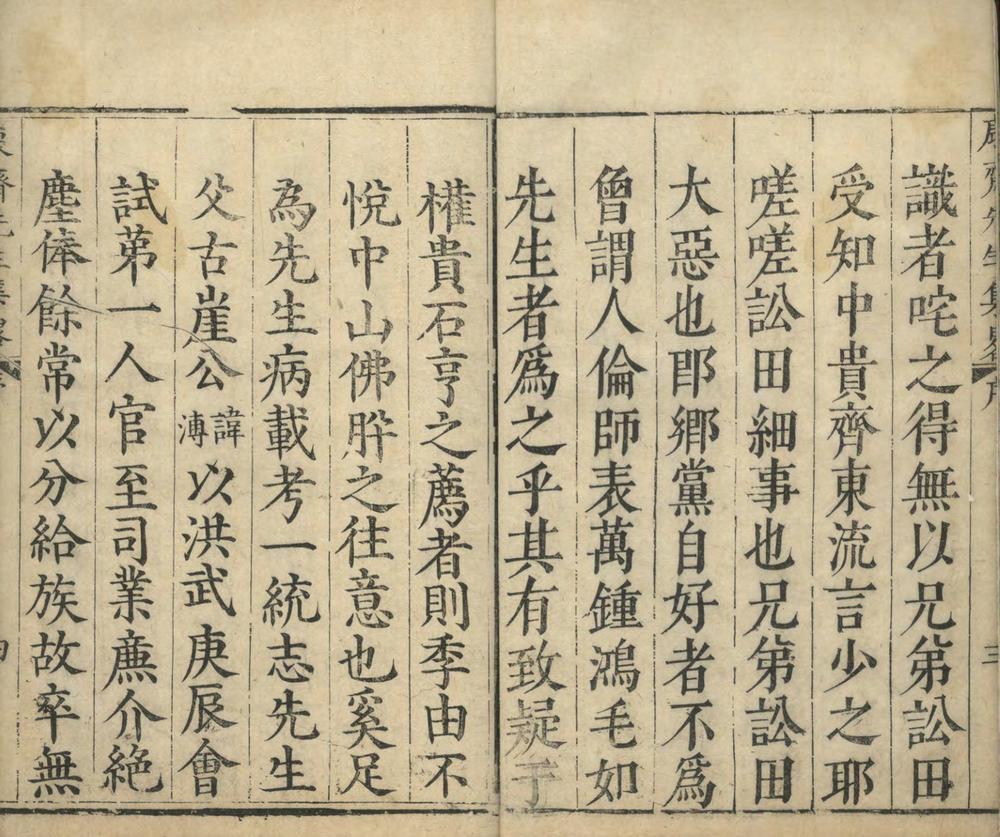 識者咤之得無以兄弟訟田
受知中貴齊東流言少之耶
嗟嗟訟田細事也兄弟訟田
大惡也即鄉黨自好者不爲
曾謂人倫師表萬鍾鴻毛如
先生者爲之乎其有致疑于
權貴石亨之薦者則季由不
悅中山佛肸之往意也奚足
為先生病載考一統志先生
父古崖公諱溥以洪武庚辰會
試第一人官至司業廉介絶
塵俸餘常以分給族故卒無